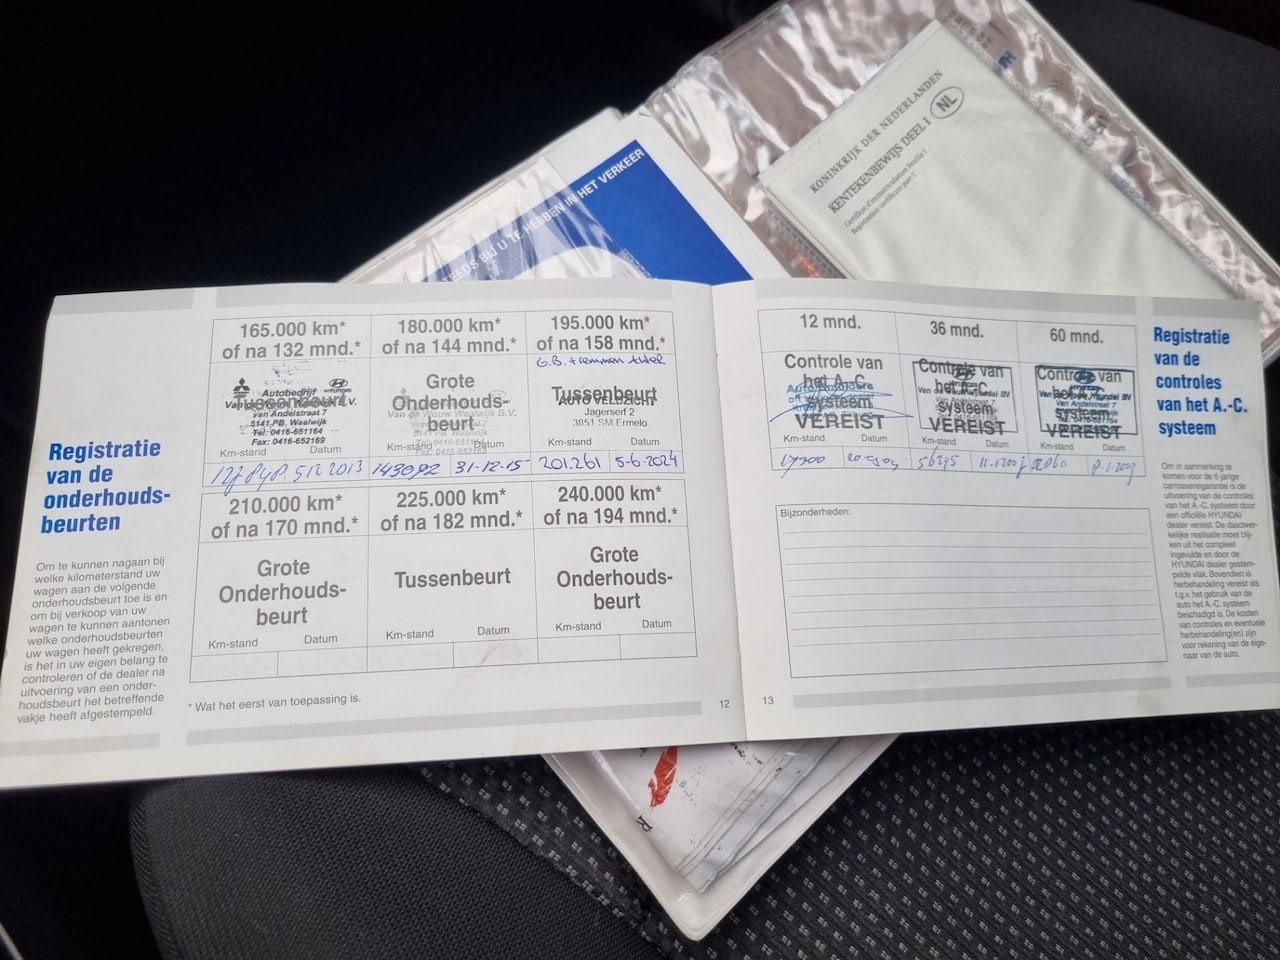 KONINKRIJK DER NEDERLANDEN
KENTEKENBEWIJS DEEL I
NL
Certificat d'immatriculation Partie I
Registration certificate part I
BIJ U TE HEBBEN IN HET VERKEER
Registratie
van de
onderhouds-
beurten
Om te kunnen nagaan bij
welke kilometerstand uw
wagen aan de volgende
onderhoudsbeurt toe is en
om bij verkoop van uw
wagen te kunnen aantonen
welke onderhoudsbeurten
uw wagen heeft gekregen,
is het in uw eigen belang te
controleren of de dealer na
uitvoering van een onder-
houdsbeurt het betreffende
vakje heeft afgestempeld.
165.000 km*
of na 132 mnd.*
Tussenbeurt
Autobedrijf
van Andelstraat 7
5141 PB Waalwijk
Tel: 0416-651164
Fax: 0416-652169
Km-stand Datum
2013
180.000 km*
of na 144 mnd.*
Grote
Onderhouds-
beurt
Van de Wouw Waalwijk B.V.
Km-stand Datum
143092 31-12-15
195.000 km*
of na 158 mnd.*
G.B. + remmen
Tussenbeurt
Jagerserf 2
3851 SM Ermelo
Km-stand Datum
201.261 5-6-2024
210.000 km*
of na 170 mnd.*
Grote
Onderhouds-
beurt
Km-stand Datum
225.000 km*
of na 182 mnd.*
Tussenbeurt
Km-stand Datum
240.000 km*
of na 194 mnd.*
Grote
Onderhouds-
beurt
Km-stand Datum
* Wat het eerst van toepassing is.
12
12 mnd.
Controle van
het A.-C.
systeem
VEREIST
Km-stand Datum
36 mnd.
Controle van
het A.-C.
systeem
VEREIST
Km-stand Datum
60 mnd.
Controle van
het A.-C.
systeem
VEREIST
Km-stand Datum
Bijzonderheden:
13
Registratie
van de
controles
van het A.-C.
systeem
Om in aanmerking te
komen voor de 6 jarige
carrosseriegarantie is de
uitvoering van de controles
van het A.-C. systeem door
een officiële HYUNDAI
dealer vereist. De daadwer-
kelijke realisatie moet blij-
ken uit het compleet
ingevulde en door de
HYUNDAI dealer gestem-
pelde vlak. Bovendien is
herbehandeling vereist als
t.g.v. het gebruik van de
auto het A.-C. systeem
beschadigd is. De kosten
van controles en eventuele
herbehandeling(en) zijn
voor rekening van de eige-
naar van de auto.